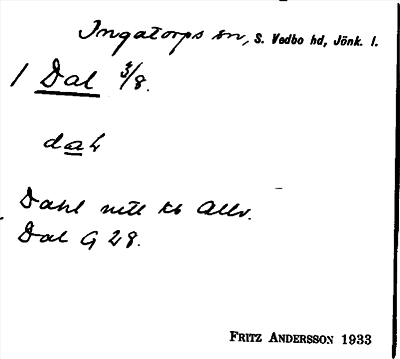 Ingatorps sn, S. Vedbo hd, Jönk. l.
1 Dal 3/8.
dal
Dahl nttl kb Allv.
Dal G 28.
FRITZ ANDERSSON 1933